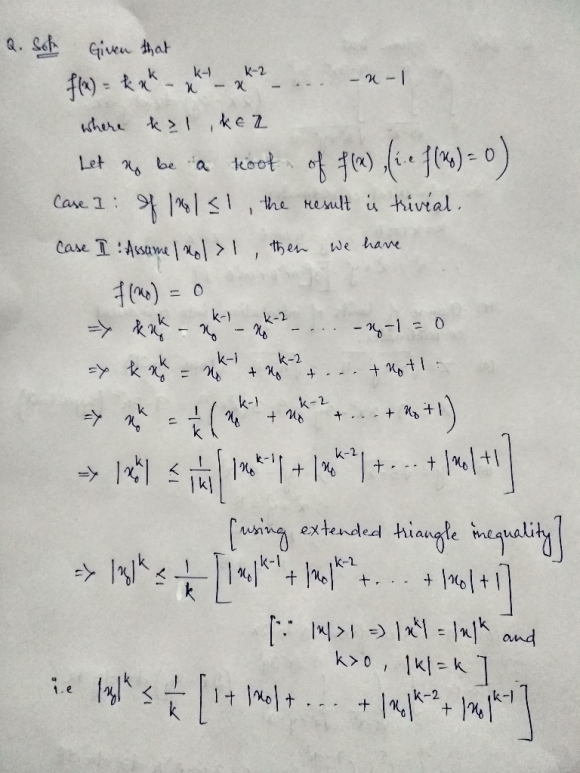 Q. Soln Given that
f(x) = k x^k - x^{k-1} - x^{k-2} - .... - x - 1
where k ≥ 1 , k ∈ Z
Let x₀ be a root of f(x), (i.e f(x₀) = 0)
Case I : If |x₀| ≤ 1 , the result is trivial.
Case II : Assume |x₀| > 1 , then we have
f(x₀) = 0
⇒ k x₀^k - x₀^{k-1} - x₀^{k-2} - .... - x₀ - 1 = 0
⇒ k x₀^k = x₀^{k-1} + x₀^{k-2} + .... + x₀ + 1
⇒ x₀^k = 1/k ( x₀^{k-1} + x₀^{k-2} + ... + x₀ + 1 )
⇒ |x₀^k| ≤ 1/|k| [ |x₀^{k-1}| + |x₀^{k-2}| + ... + |x₀| + 1 ]
[using extended triangle inequality]
⇒ |x₀|^k ≤ 1/k [ |x₀|^{k-1} + |x₀|^{k-2} + .... + |x₀| + 1 ]
[∵ |x| > 1 ⇒ |x^k| = |x|^k and
k > 0 , |k| = k ]
i.e |x₀|^k ≤ 1/k [ 1 + |x₀| + .... + |x₀|^{k-2} + |x₀|^{k-1} ]